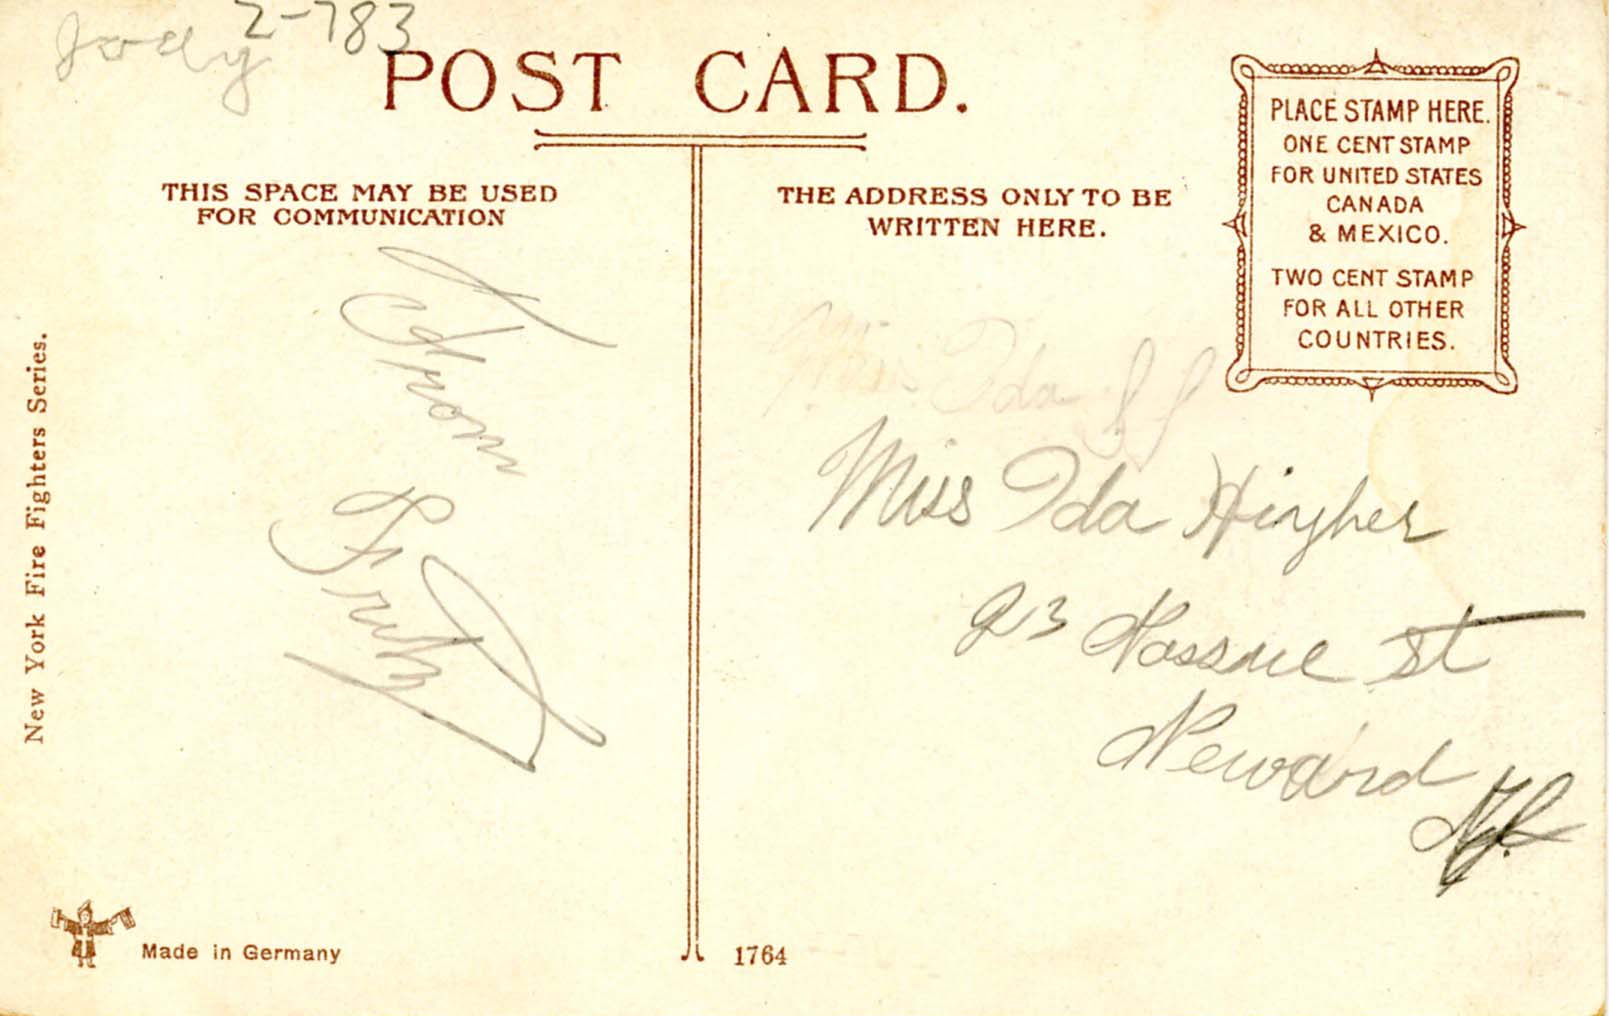 2-783
POST CARD.
PLACE STAMP HERE.
ONE CENT STAMP
FOR UNITED STATES
CANADA
& MEXICO.
TWO CENT STAMP
FOR ALL OTHER
COUNTRIES.
THIS SPACE MAY BE USED
FOR COMMUNICATION
THE ADDRESS ONLY TO BE
WRITTEN HERE.
From
Miss Ida
Miss Ida
23 St
N.J.
New York Fire Fighters Series.
Made in Germany
1764